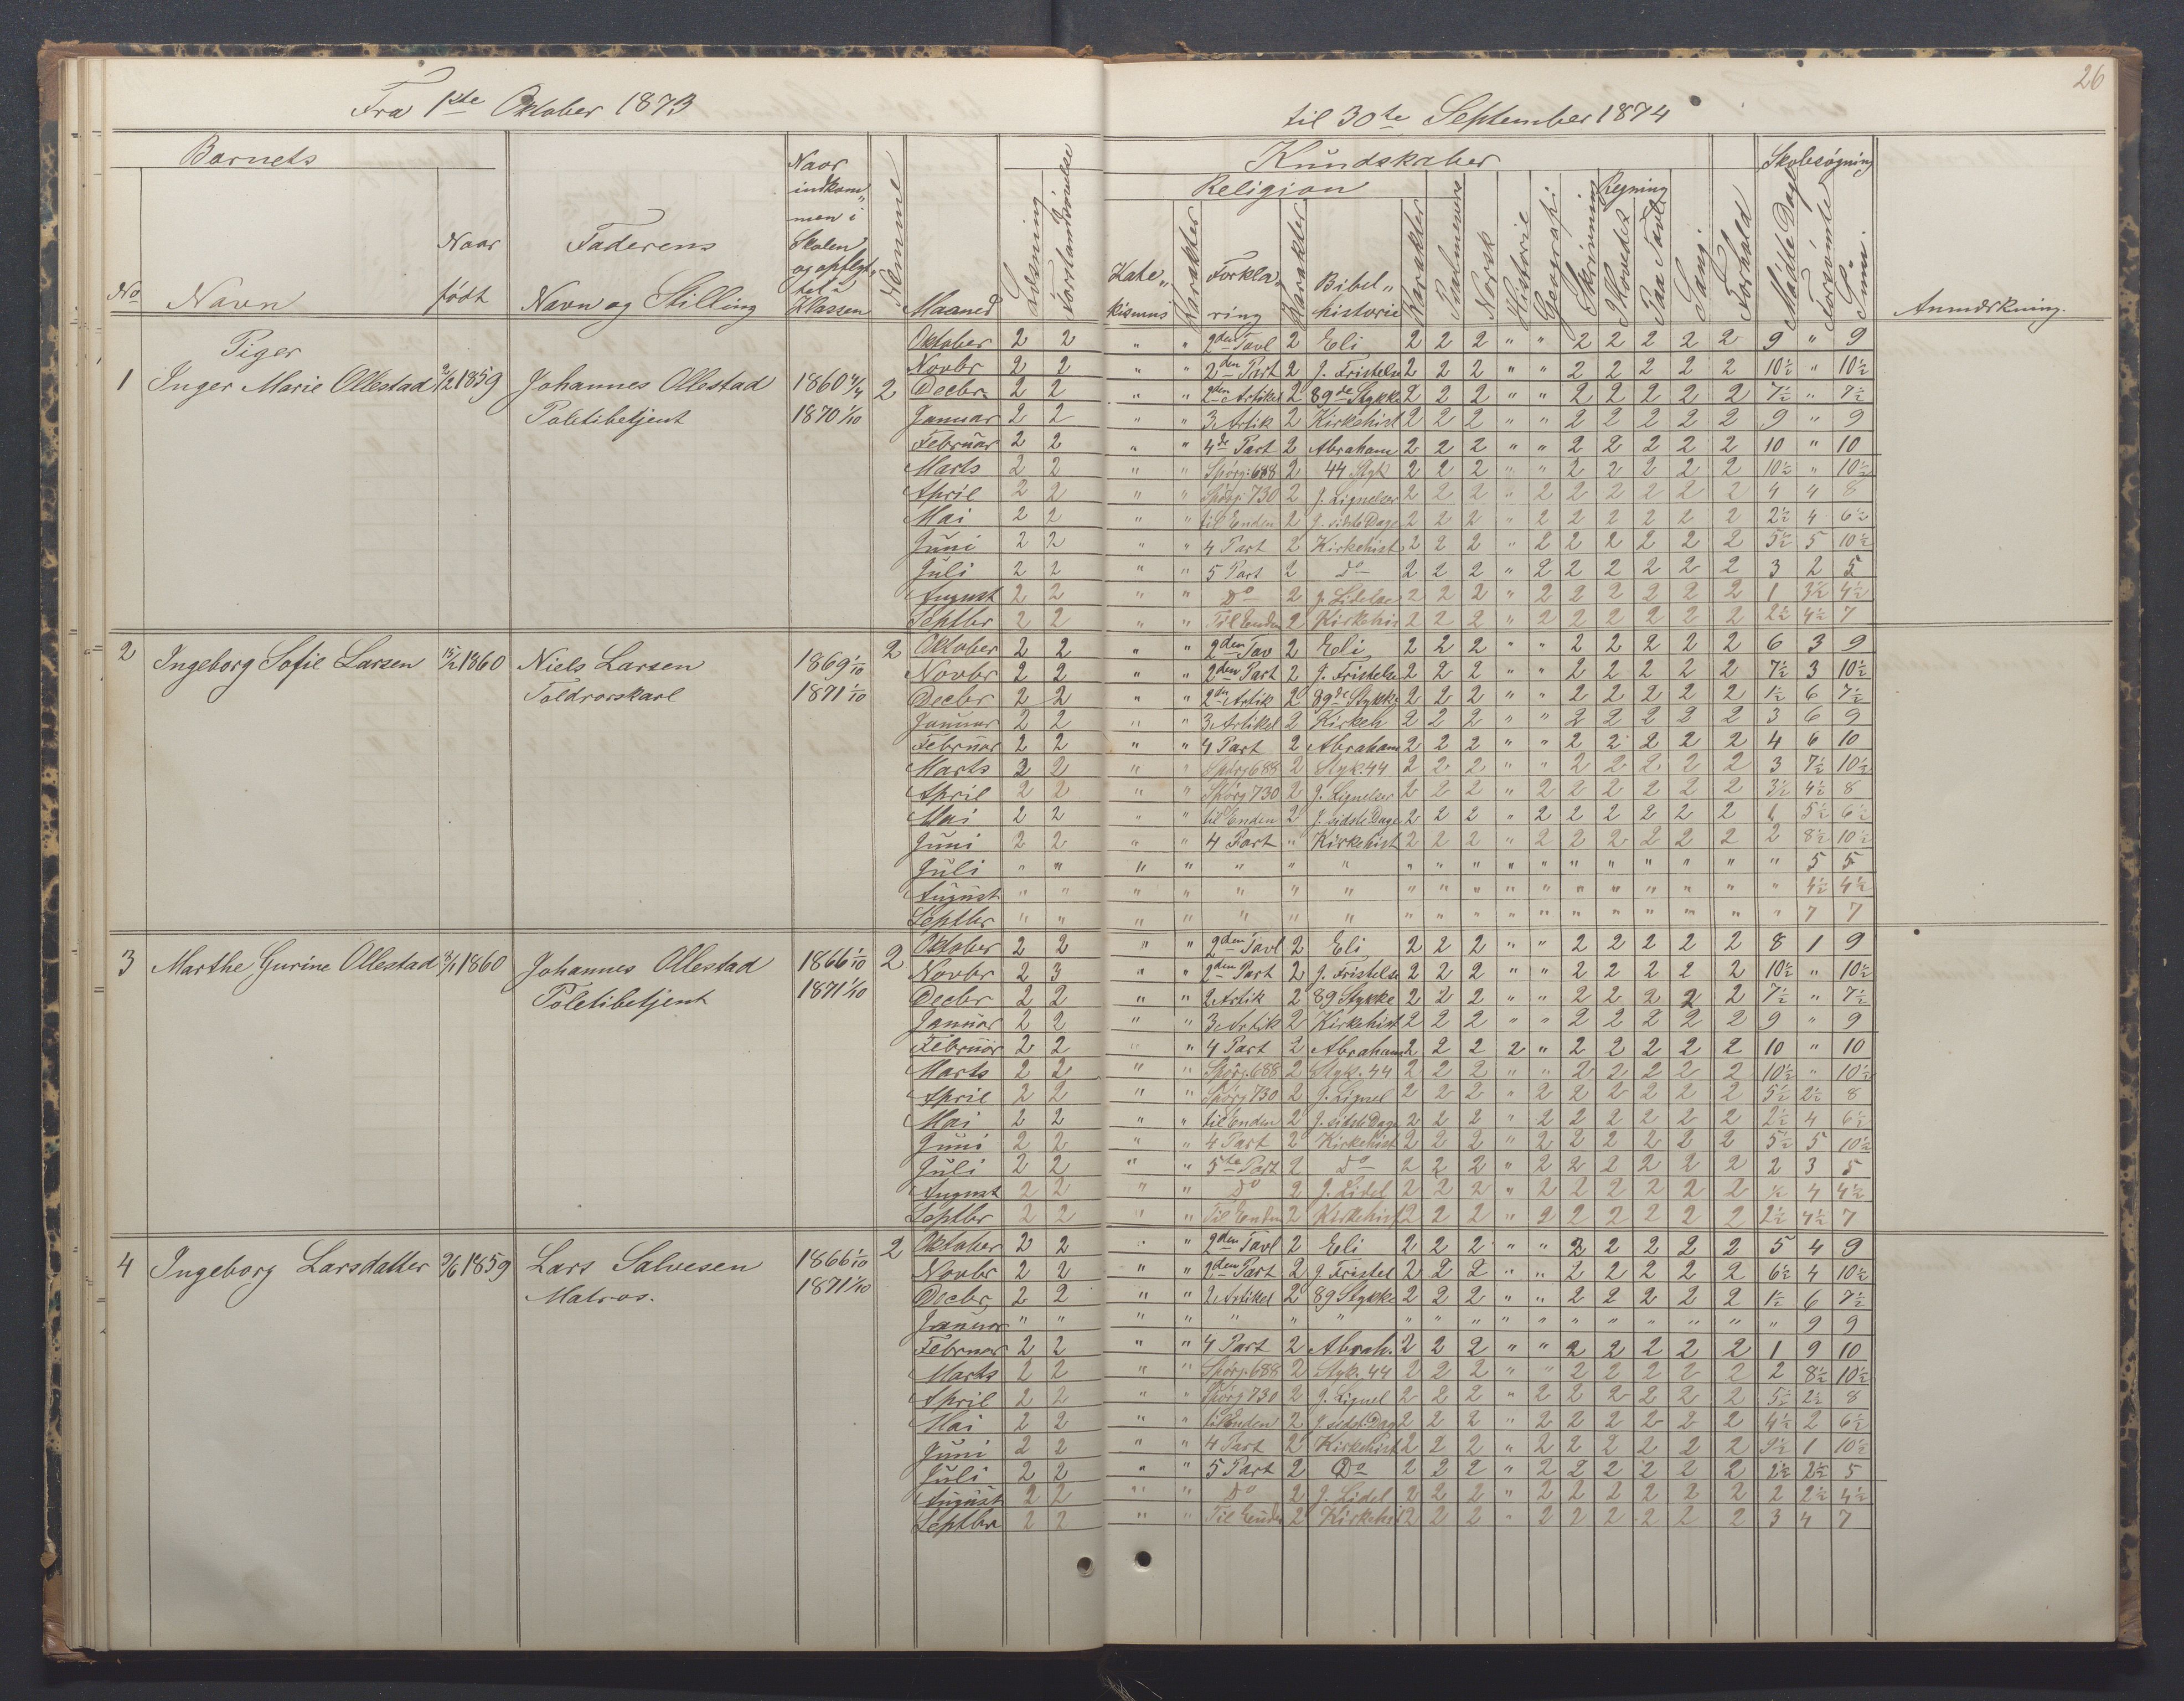 26
Fra 1ste Oktober 1873 til 30te September 1874
Barnets Kundskaber Skolesøgning
Religion Regning
No Navn Naar født Faderens Navn og Stilling Naar indkom„men i Skolen og opflyt„tet i Klassen Nemme Maaned Læsning Forstandsøvelse Kate„kismus Karakter Forkla„ring Karakter Bibel„historie Karakter Psalmevers Norsk Historie Geografi Skrivning Hovedet Paa Tavl Sang Forhold Mödte Dage Forsömte Sum. Anmærkning.
Piger
1 Inger Marie Ollestad 2/2 1859 Johannes Ollestad Politibetjent 1870 1/10 2
Oktober 2 2 " " 2den Tavl 2 Eli 2 2 2 " " 2 2 2 2 2 9 " 9
Novbr 2 2 " " 2den Part 2 J. Fristelse 2 2 2 " " 2 2 2 2 2 10½ " 10½
Decbr. 2 2 " " 2den Artikel 2 89de Stykke 2 2 2 " " 2 2 2 2 2 7½ " 7½
Januar 2 2 " " 3 Artik 2 Kirkehist 2 2 2 " " 2 2 2 2 2 9 " 9
Februar 2 2 " " 4de Part 2 Abraham 2 2 2 " " 2 2 2 2 2 10 " 10
Marts 2 2 " " Spörg: 688 2 44 Styk 2 2 2 " " 2 2 2 2 2 10½ " 10½
April 2 2 " " Spörg: 730 2 J. Lignelser 2 2 2 " 2 2 2 2 2 2 4 4 8
Mai 2 2 " " til Enden 2 J. sidste Dage 2 2 2 " 2 2 2 2 2 2 2½ 4 6½
Juni 2 2 " " 4 Part 2 Kirkehist 2 2 2 " 2 2 2 2 2 2 5½ 5 10½
Juli 2 2 " " 5 Part 2 Do 2 2 2 " 2 2 2 2 2 2 3 2 5
August 2 2 " " Do 2 J. Lidelse 2 2 2 " 2 2 2 2 2 2 1 3½ 4½
Septbr 2 2 " " Til Enden 2 Kirkehis 2 2 2 " 2 2 2 2 2 2 2½ 4½ 7
2 Ingeborg Sofie Larsen 15/12 1860 Niels Larsen Toldrorskarl 1869 1/10 1871 1/10 2
Oktober 2 2 " " 2den Tav 2 Eli 2 2 2 " " 2 2 2 2 2 6 3 9
Novbr 2 2 " " 2den Part 2 J. Fristelse 2 2 2 " " 2 2 2 2 2 7½ 3 10½
Decbr 2 2 " " 2den Artik 2 89de Stykke 2 2 2 " " 2 2 2 2 2 1½ 6 7½
Januar 2 2 " " 3 Artikel 2 Kirkeh 2 2 2 " " 2 2 2 2 2 3 6 9
Februar 2 2 " " 4 Part 2 Abraham 2 2 2 " " 2 2 2 2 2 4 6 10
Marts 2 2 " " Spörg 688 2 Styk. 44 2 2 2 " " 2 2 2 2 2 3 7½ 10½
April 2 2 " " Spörg 730 2 J. Lignelser 2 2 2 " 2 2 2 2 2 2 3½ 4½ 8
Mai 2 2 " " til Enden 2 J. sidste Dage 2 2 2 " 2 2 2 2 2 2 1 5½ 6½
Juni 2 2 " " 4 Part " Kirkehist 2 2 2 " 2 2 2 2 2 2 2 8½ 10½
Juli " " " " " " " " " " " " " " " " " " 5 5
August " " " " " " " " " " " " " " " " " " 4½ 4½
Septbr " " " " " " " " " " " " " " " " " " 7 7
3 Marthe Gurine Ollestad 1860 Johannes Ollestad Politibetjent 1866 1/10 1871 1/10 2
Oktober 2 2 " " 2den Tavl 2 Eli 2 2 2 " " 2 2 2 2 2 8 1 9
Novbr 2 3 " " 2den Part 2 J. Fristelse 2 2 2 " " 2 2 2 2 2 10½ " 10½
Decbr 2 2 " " 2 Artik 2 89 Stykke 2 2 2 " " 2 2 2 2 2 7½ " 7½
Januar 2 2 " " 3 Artik 2 Kirkehist 2 2 2 " " 2 2 2 2 2 9 " 9
Februar 2 2 " " 4 Part 2 Abraham 2 2 2 2 " 2 2 2 2 2 10 " 10
Marts 2 2 " " Spörg. 688 2 Styk. 44 2 2 2 " " 2 2 2 2 2 10½ " 10½
April 2 2 " " Spörg 730 2 J. Lignel 2 2 2 " 2 2 2 2 2 2 5½ 2½ 8
Mai 2 2 " " til Enden 2 J. sidste Dage 2 2 2 " 2 2 2 2 2 2 2½ 4 6½
Juni 2 2 " " 4 Part 2 Kirkehist 2 2 2 " 2 2 2 2 2 2 5½ 5 10½
Juli 2 2 " " 5te Part 2 Do 2 2 2 " 2 2 2 2 2 2 2 3 5
August 2 2 " " Do 2 J. Lidel 2 2 2 " 2 2 2 2 2 2 ½ 4 4½
Septbr 2 2 " " Til Enden 2 Kirkehist 2 2 2 " 2 2 2 2 2 2 2½ 4½ 7
4 Ingeborg Larsdatter 9/6 1859 Lars Salvesen Matros. 1866 1/10 1871 1/10 2
Oktober 2 2 " " 2den Tavl 2 Eli 2 2 2 " " 2 2 2 2 2 5 4 9
Novbr 2 2 " " 2den Part 2 J. Fristel 2 2 2 " " 2 2 2 2 2 6½ 4 10½
Decbr 2 2 " " 2 Artikel 2 89 Stykke 2 2 2 " " 2 2 2 2 2 1½ 6 7½
Januar " " " " " " " " " " " " " " " " " " 9 9
Februar 2 2 " " 4 Part 2 Abrah. 2 2 2 " " 2 2 2 2 2 1 9 10
Marts 2 2 " " Spörg. 688 2 Styk. 44 2 2 2 " " 2 2 2 2 2 2 8½ 10½
April 2 2 " " Spörg 730 2 J. Lignel 2 2 2 " 2 2 2 2 2 2 5½ 2½ 8
Mai 2 2 " " til Enden 2 J. sidst. Dag 2 2 2 " 2 2 2 2 2 2 4½ 2 6½
Juni 2 2 " " 4 Part 2 Kirkehist 2 2 2 " 2 2 2 2 2 2 9½ 1 10½
Juli 2 2 " " 5 Part 2 Do 2 2 2 " 2 2 2 2 2 2 2½ 2½ 5
August 2 2 " " Do 2 J. Lidel 2 2 2 " 2 2 2 2 2 2 2 2½ 4½
Septbr 2 2 " " Til Enden 2 Kirkehis 2 2 2 " 2 2 2 2 2 2 3 4 7